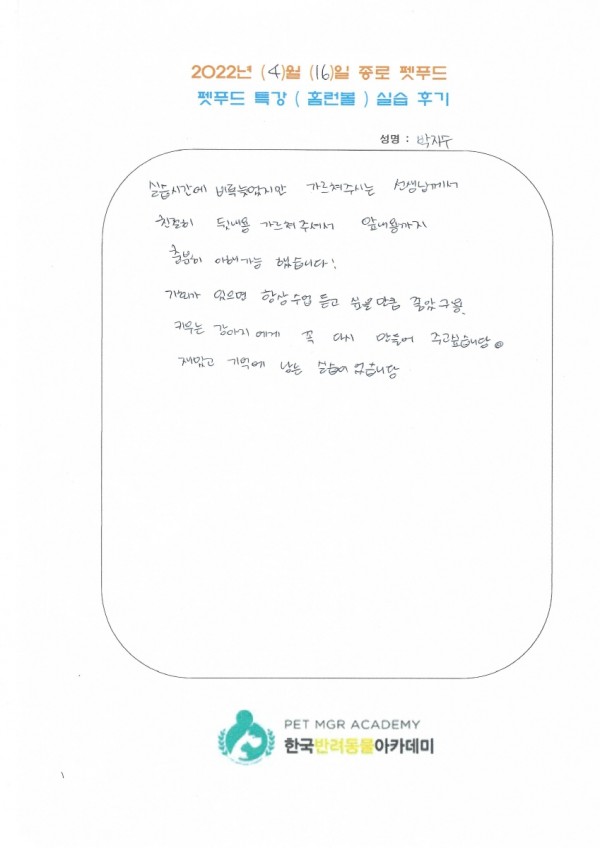 2022년 (4)월 (16)일 종로 펫푸드
펫푸드 특강 ( 홈런볼 ) 실습 후기
성명 : 박지수
실습시간에 비록늦었지만 가르쳐주시는 선생님께서
친절히 뒷내용 가르쳐주셔서 앞내용까지
충분히 이해가능 했습니다!
기회가 있으면 항상 수업 듣고 싶을만큼 좋았구용,
키우는 강아지에게 꼭 다시 만들어 주고싶습니당
재밌고 기억에 남는 실습이었습니당
PET MGR ACADEMY
한국반려동물아카데미